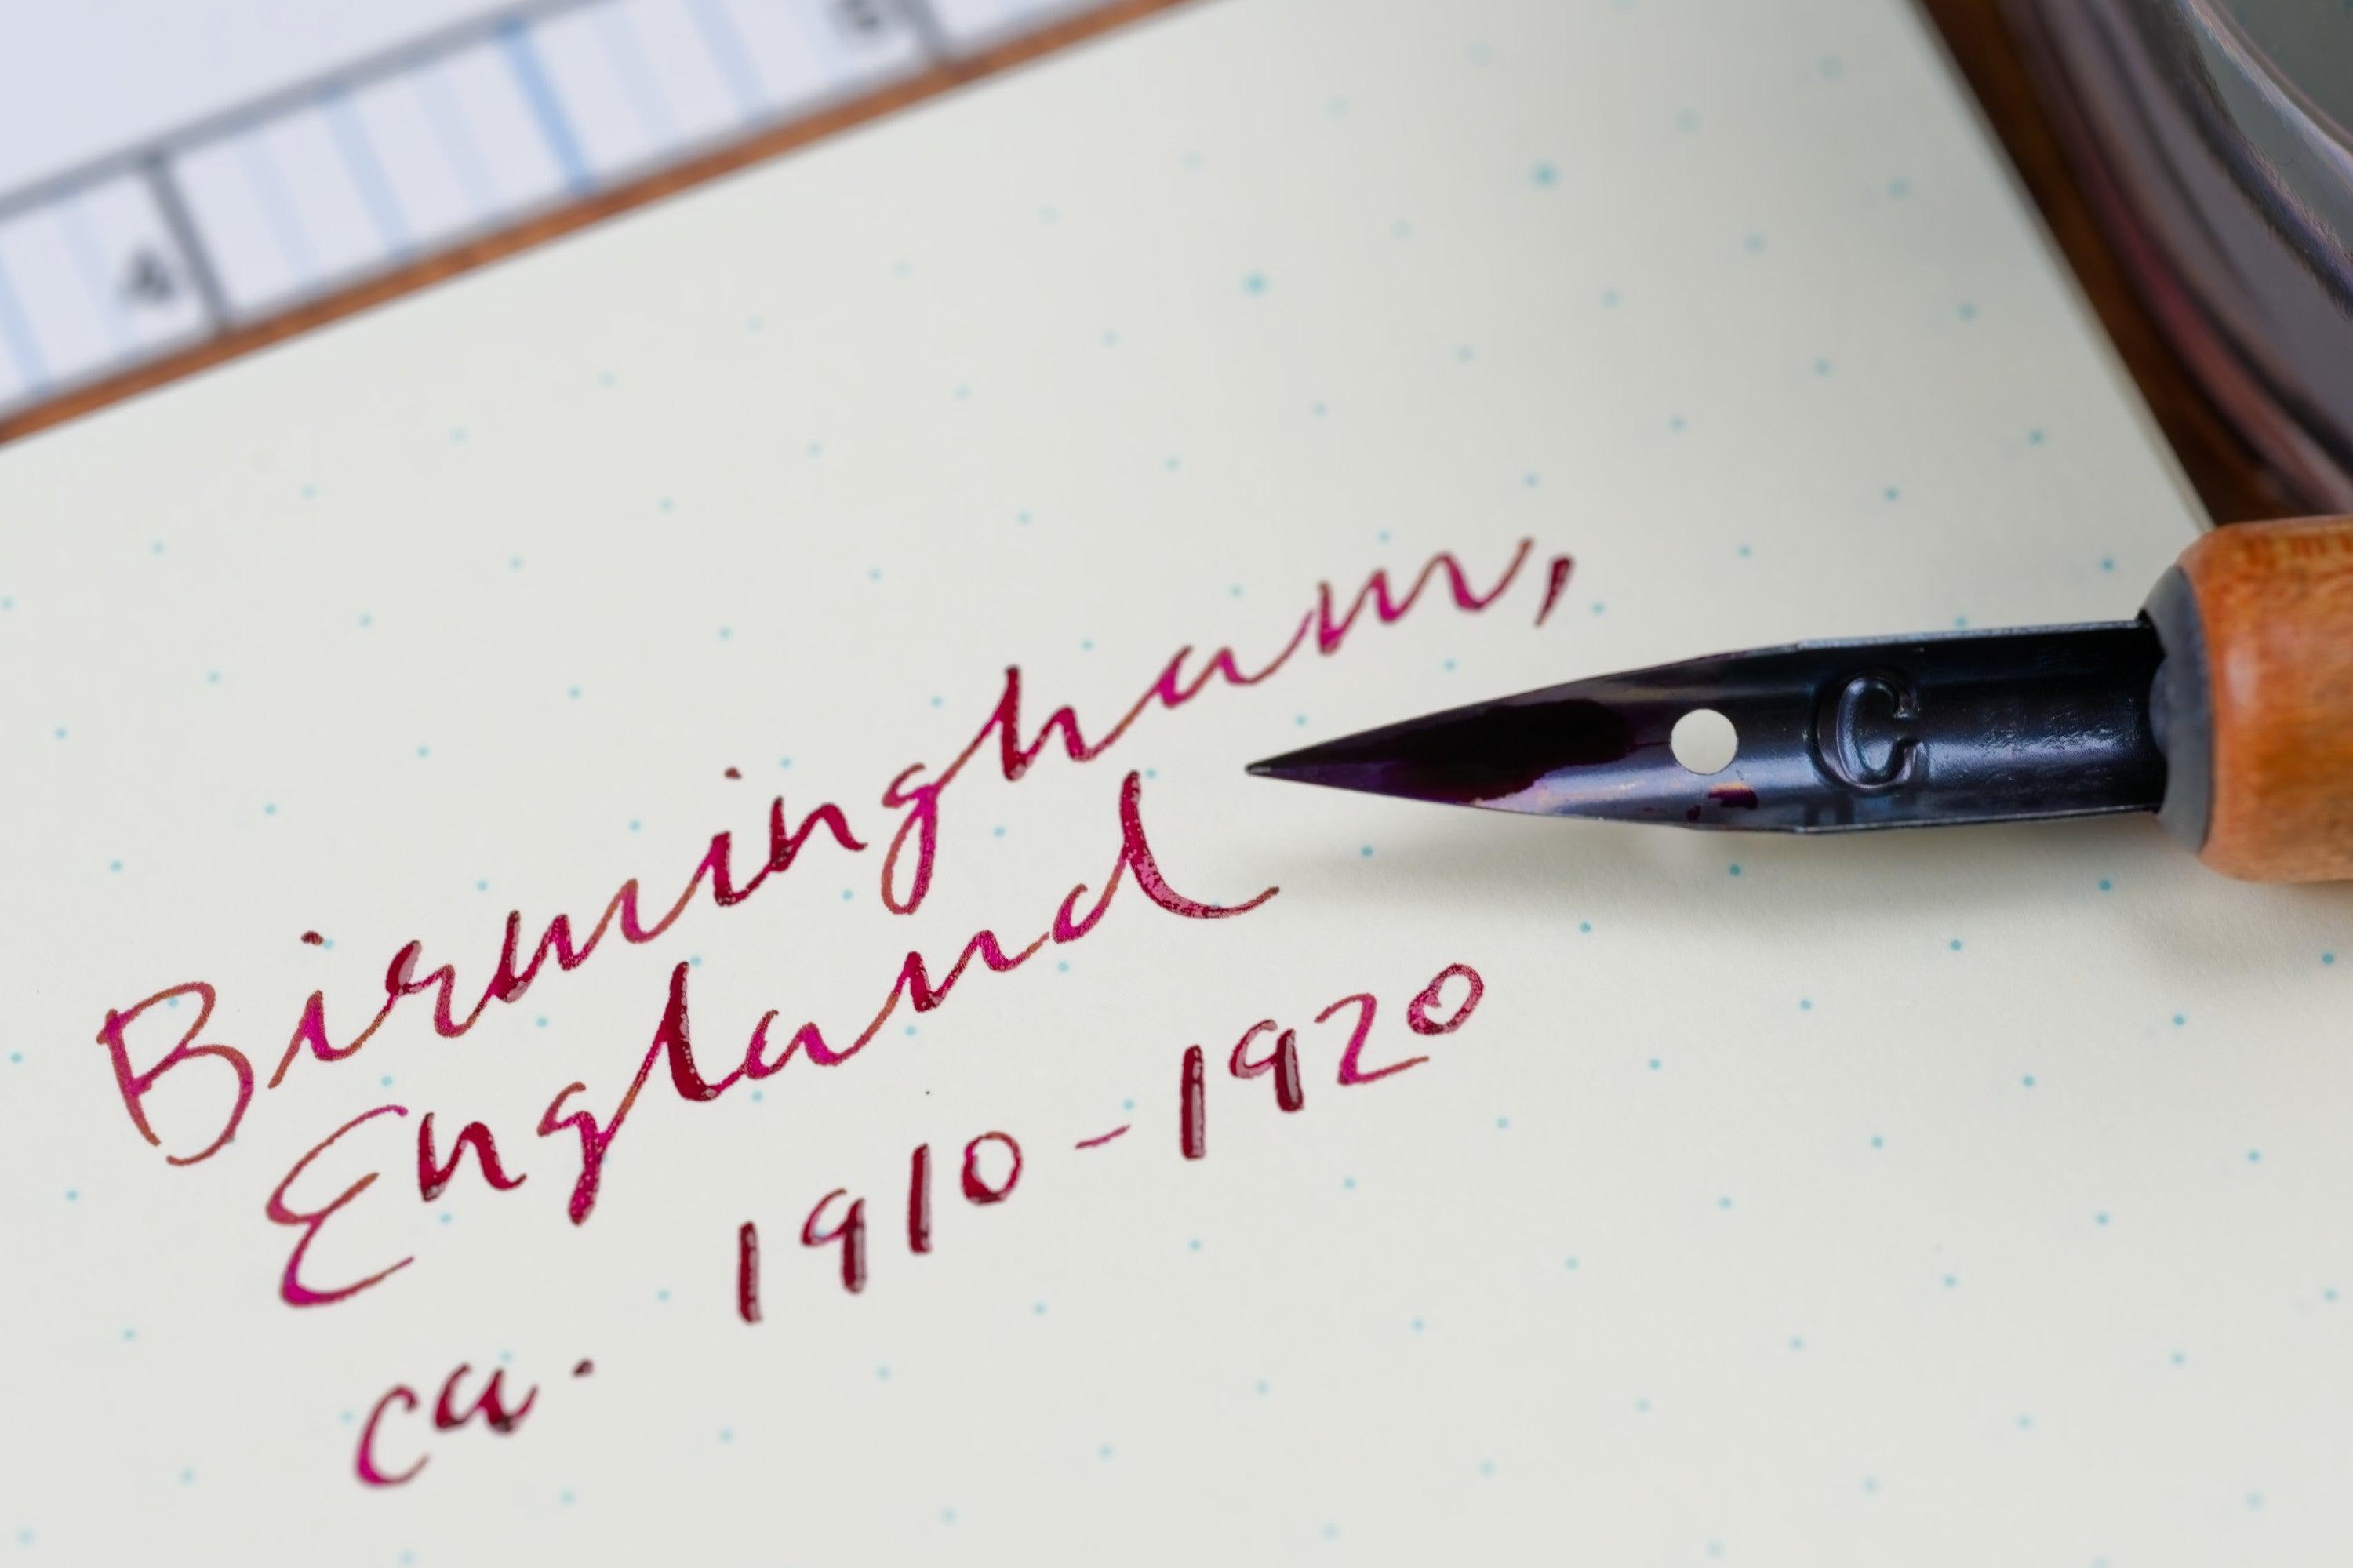 4
Birmingham,
C
England
ca. 1910-1920